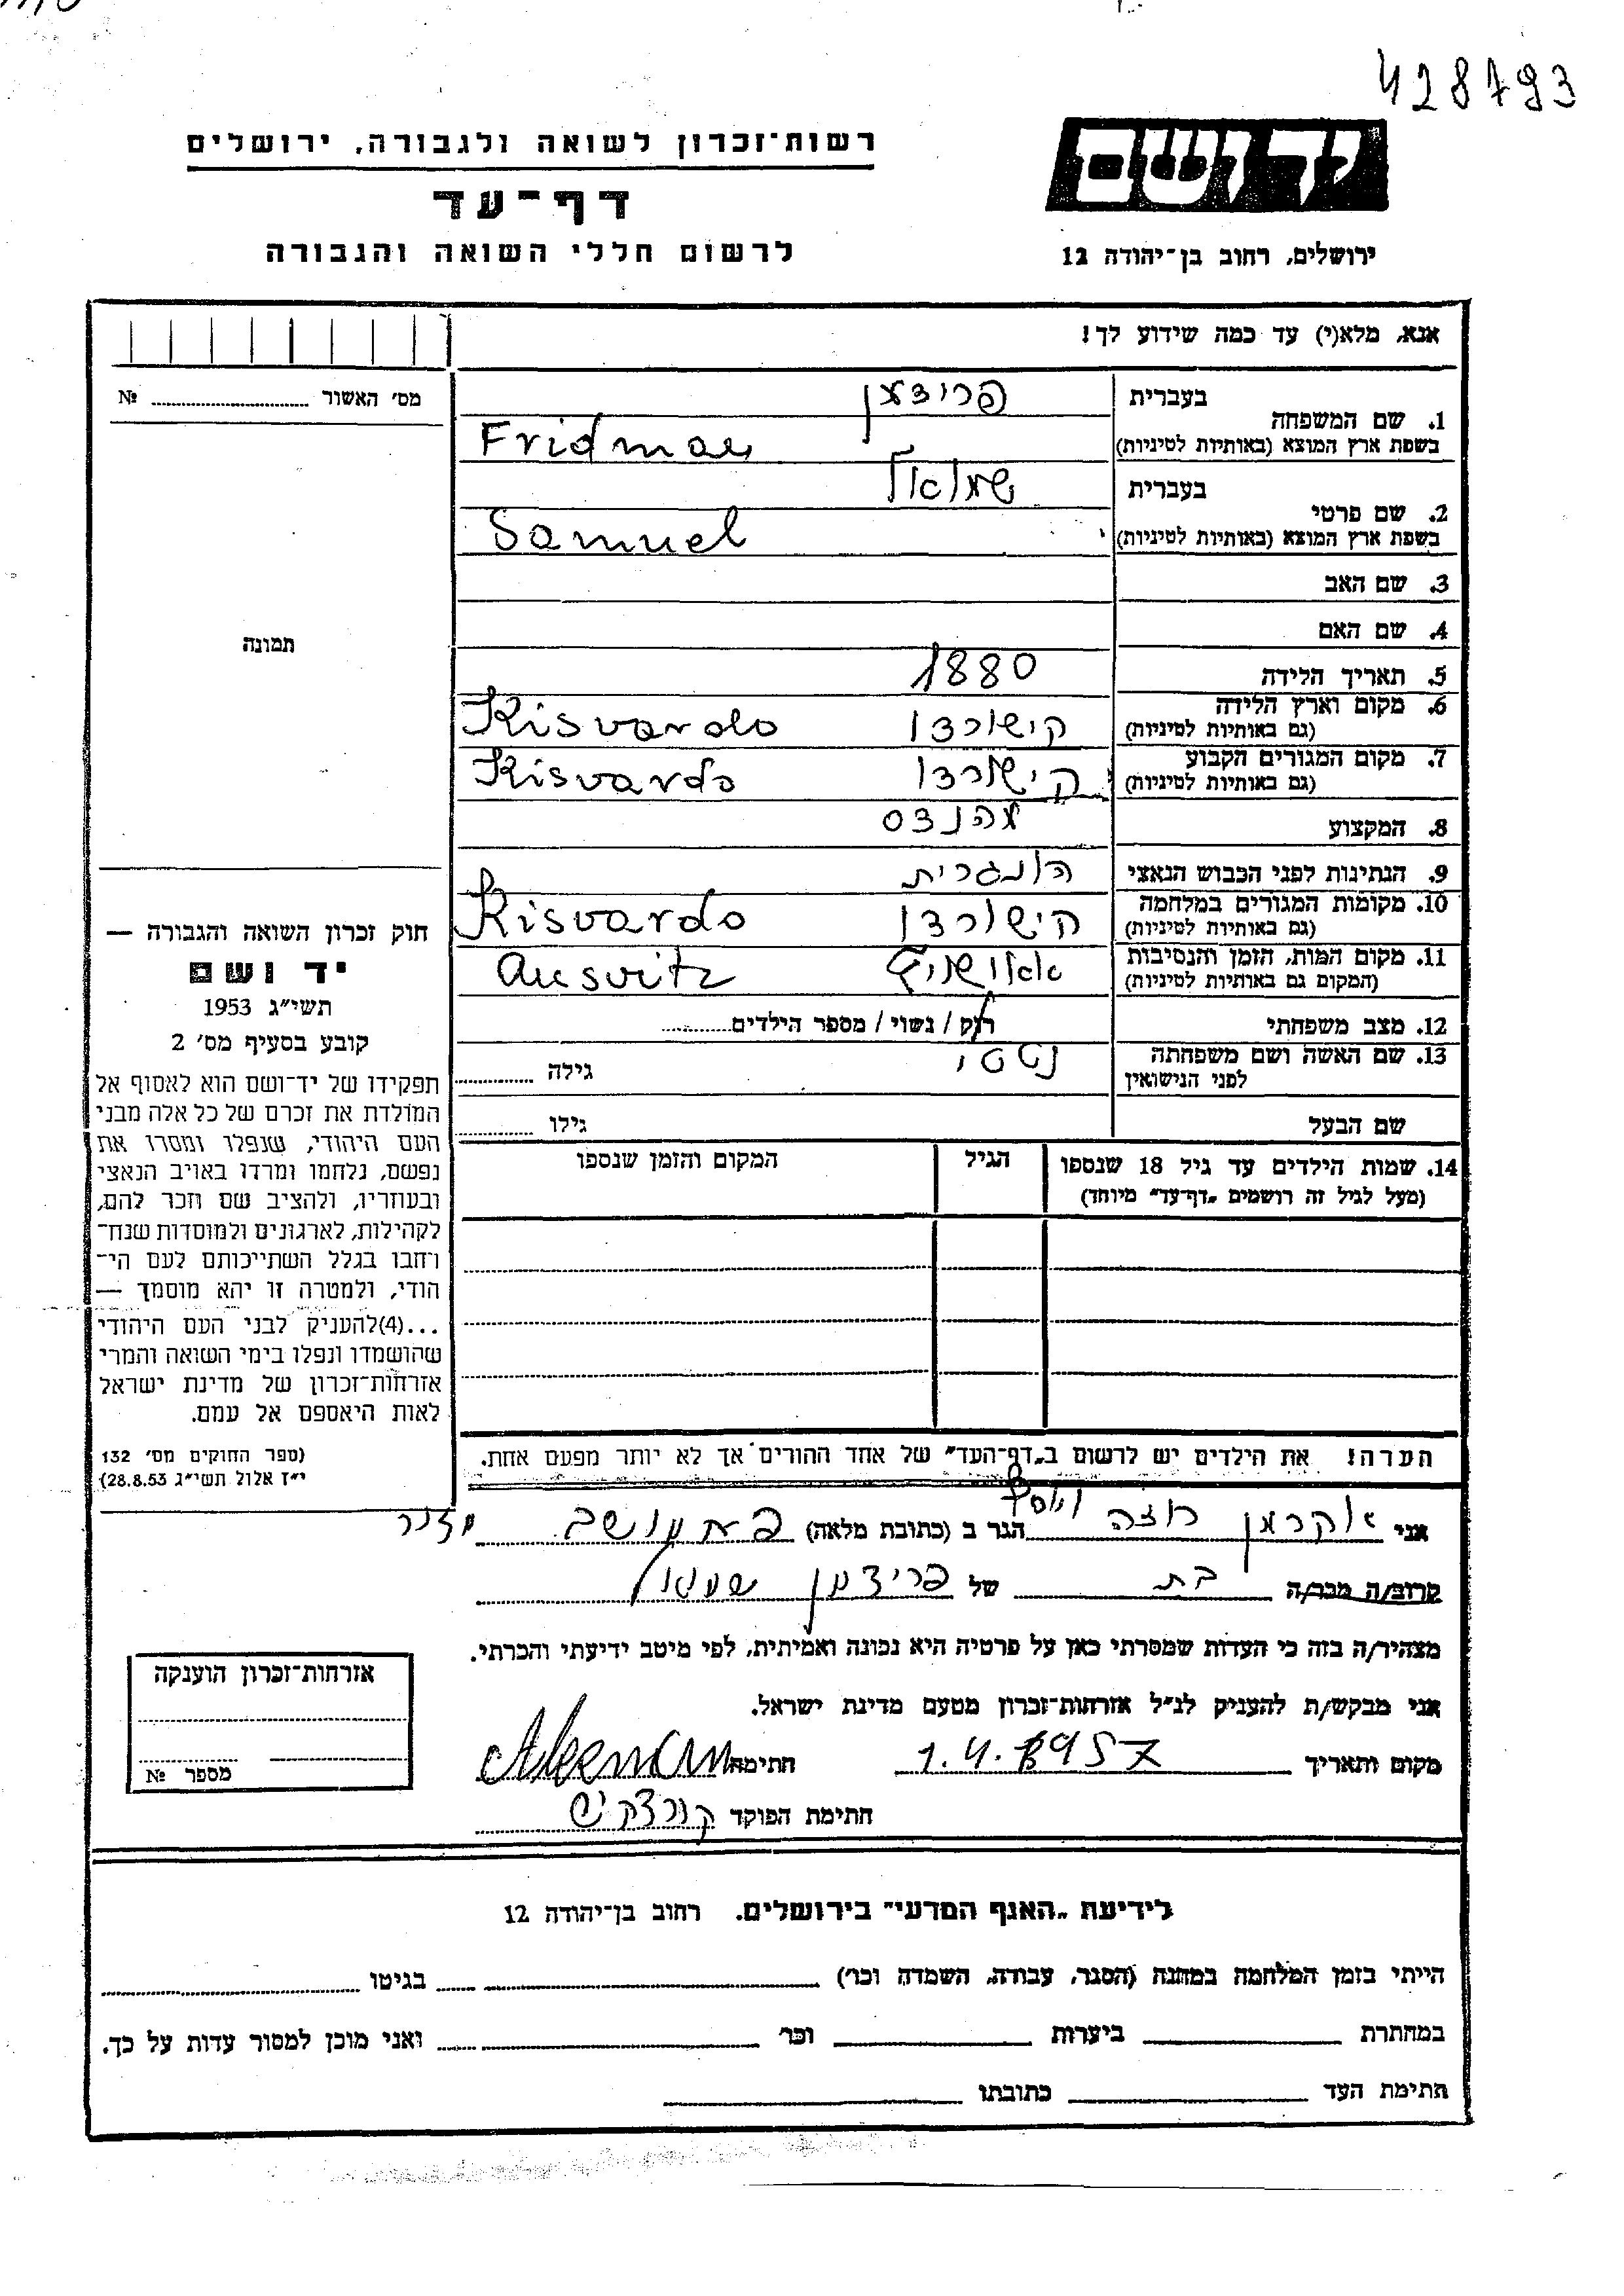 428793
יד ושם
רשות־זכרון לשואה ולגבורה, ירושלים
דף־עד
לרשום חללי השואה והגבורה
ירושלים, רחוב בן־יהודה 12
אנא, מלא(י) עד כמה שידוע לך!
מס׳ האשור № ..........
בעברית פרידמן
1. שם המשפחה
בשפת ארץ המוצא (באותיות לטיניות) Fridman
בעברית שמואל
2. שם פרטי
בשפת ארץ המוצא (באותיות לטיניות) Samuel
3. שם האב
4. שם האם
תמונה
5. תאריך הלידה 1880
6. מקום וארץ הלידה קישורדו Kisvardo
(גם באותיות לטיניות)
7. מקום המגורים הקבוע קישורדו Kisvardo
(גם באותיות לטיניות)
8. המקצוע מהנדס
9. הנתינות לפני הכבוש הנאצי הונגרית
10. מקומות המגורים במלחמה קישורדו Kisvardo
(גם באותיות לטיניות)
11. מקום המות, הזמן והנסיבות אאושויץ Ausvitz
(המקום גם באותיות לטיניות)
12. מצב משפחתי רוק / נשוי / מספר הילדים..........
13. שם האשה ושם משפחתה נטטי גילה ..........
לפני הנישואין
שם הבעל גילו ..........
14. שמות הילדים עד גיל 18 שנספו הגיל המקום והזמן שנספו
(מעל לגיל זה רושמים „דף־עד” מיוחד)
חוק זכרון השואה והגבורה —
יד ושם
תשי״ג 1953
קובע בסעיף מס׳ 2
תפקידו של יד־ושם הוא לאסוף אל
המולדת את זכרם של כל אלה מבני
העם היהודי, שנפלו ומסרו את
נפשם, נלחמו ומרדו באויב הנאצי
ובעוזריו, ולהציב שם וזכר להם,
לקהילות, לארגונים ולמוסדות שנח־
רחבו בגלל השתייכותם לעם הי־
הודי, ולמטרה זו יהא מוסמך —
...(4)להעניק לבני העם היהודי
שהושמדו ונפלו בימי השואה והמרי
אזרחות־זכרון של מדינת ישראל
לאות היאספם אל עמם.
(ספר החוקים מס׳ 132
י״ז אלול תשי״ג 28.8.53)
הערה! את הילדים יש לרשום ב„דף־העד” של אחד ההורים אך לא יותר מפעם אחת.
אני אקרמן רוזה הגר ב (כתובת מלאה)
קרוב/ה מכר/ה בת של פרידמן שמואל
מצהיר/ה בזה כי העדות שמסרתי כאן על פרטיה היא נכונה ואמיתית, לפי מיטב ידיעתי והכרתי.
אני מבקש/ת להעניק לנ״ל אזרחות־זכרון מטעם מדינת ישראל.
מקום ותאריך 1.4.1957 חתימה Akerman
חתימת הפוקד
אזרחות־זכרון הוענקה
מספר №
לידיעת „האגף המדעי” בירושלים. רחוב בן־יהודה 12
הייתי בזמן המלחמה במחנה (הסגר, עבודה, השמדה וכו׳) בגיטו
במחתרת ביערות וכו׳ ואני מוכן למסור עדות על כך.
חתימת העד כתובתו